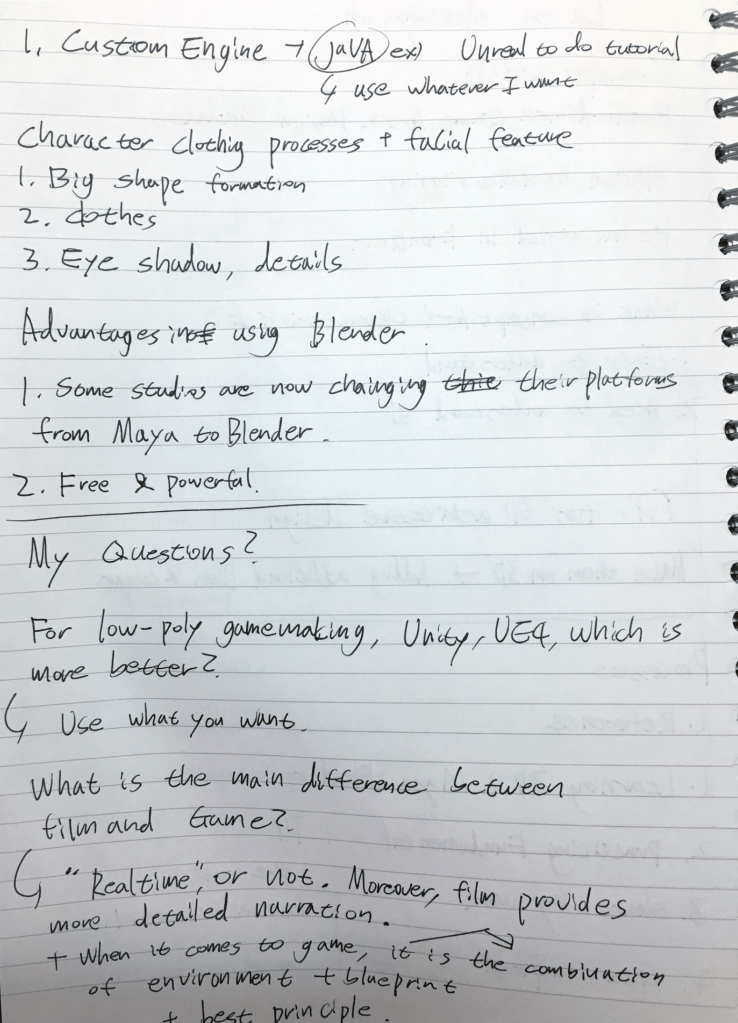 1. Custom Engine → JaVA ex) Unreal to do tutorial
↳ use whatever I want
Character clothig processes + facial feature
1. Big shape formation
2. clothes
3. Eye shadow, details
Advantages in of usig Blender.
1. Some studios are now chainging their platforms
from Maya to Blender.
2. Free & powerful.
My Questions?
For low-poly gamemaking, Unity, UE4, which is
more better?
↳ Use what you want.
What is the main difference between
film and Game?
↳ "Realtime", or not. Moreover, film provides
more detailed narration.
+ When it comes to game, it is the combination
of environment + blueprint
+ best principle.